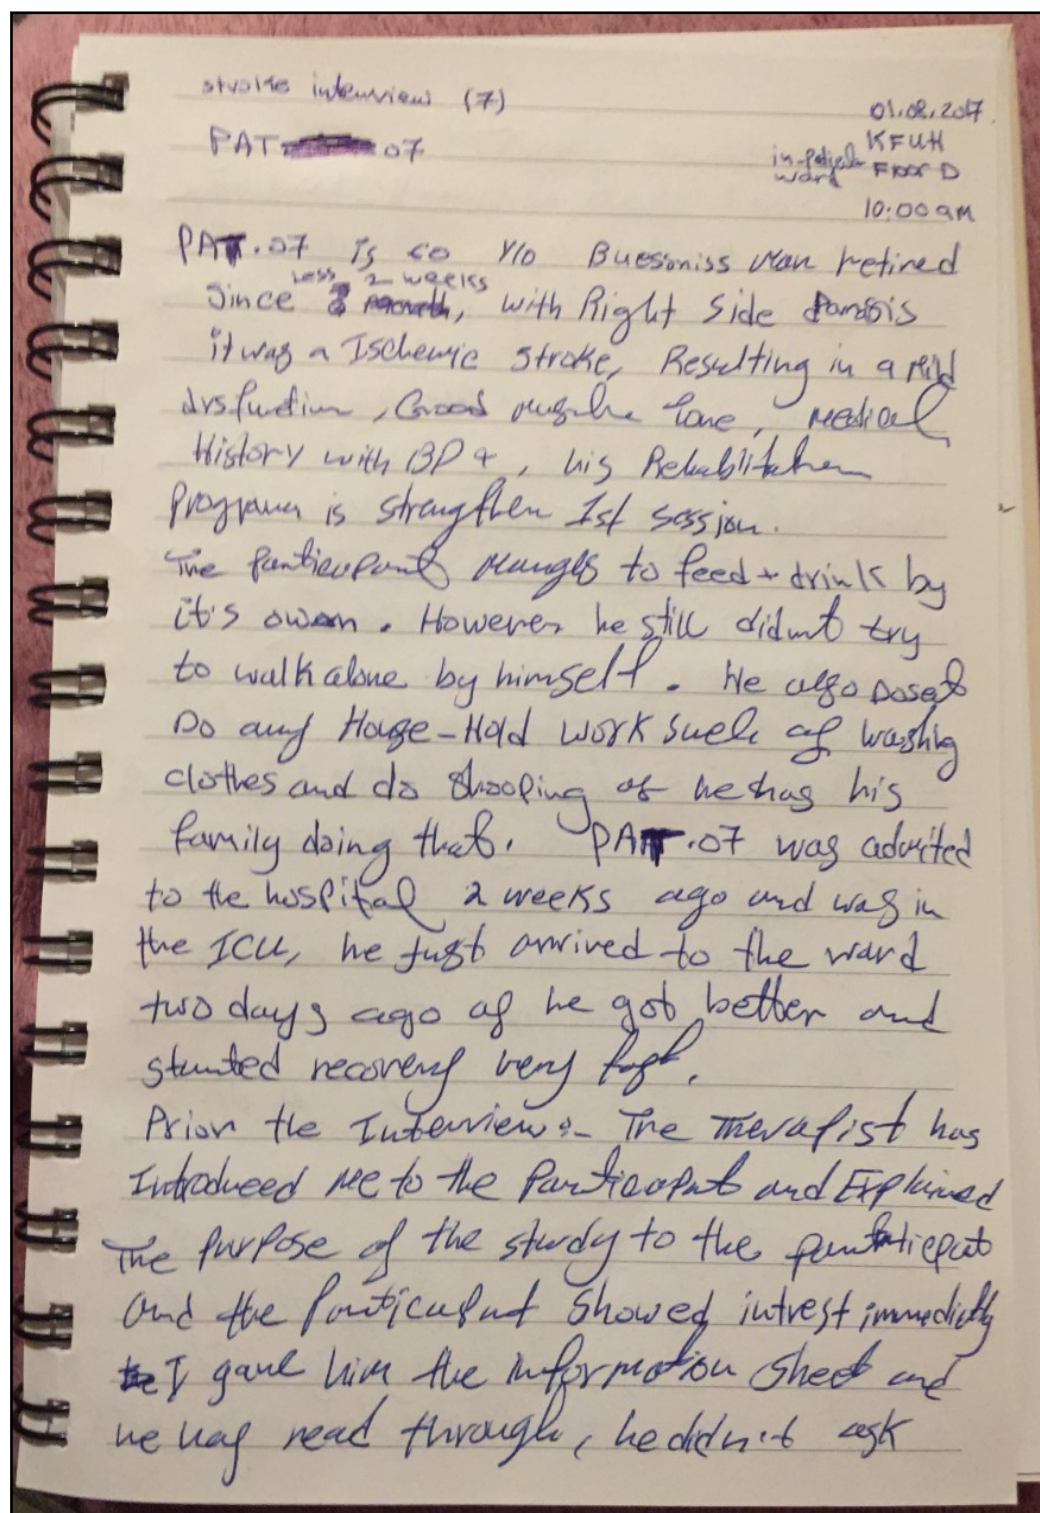 stroke interview (7)
01.08.2017
PAT 07
KFUH
in-patient Floor D
ward
10:00 am
PAT.07 is 60 Y/o Buesoniss man retired
less 2 weeks
since, with Right side
it was a Ischemic stroke, Resulting in a mild
disfunction, Good tone, medical
History with BP +, his Rehablitation
Program is strengthen 1st session.
The participant manges to feed + drink by
it's owen. However he still didnt try
to walk alone by himself. He also Doset
Do any House-Hold work such as washing
clothes and do shooping as he has his
family doing that. PAT.07 was admited
to the hospital 2 weeks ago and was in
the ICU, he just arrived to the ward
two days ago as he got better and
started recovery very fast.
Prior the Interview:- The Therapist has
Introduced me to the Participant and Explained
The purpose of the study to the
and the Participant showed intrest immedictly
I gave him the information sheet and
he has read through, he didn't ask